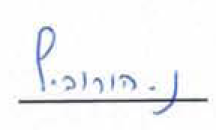 נ. הורוביץ